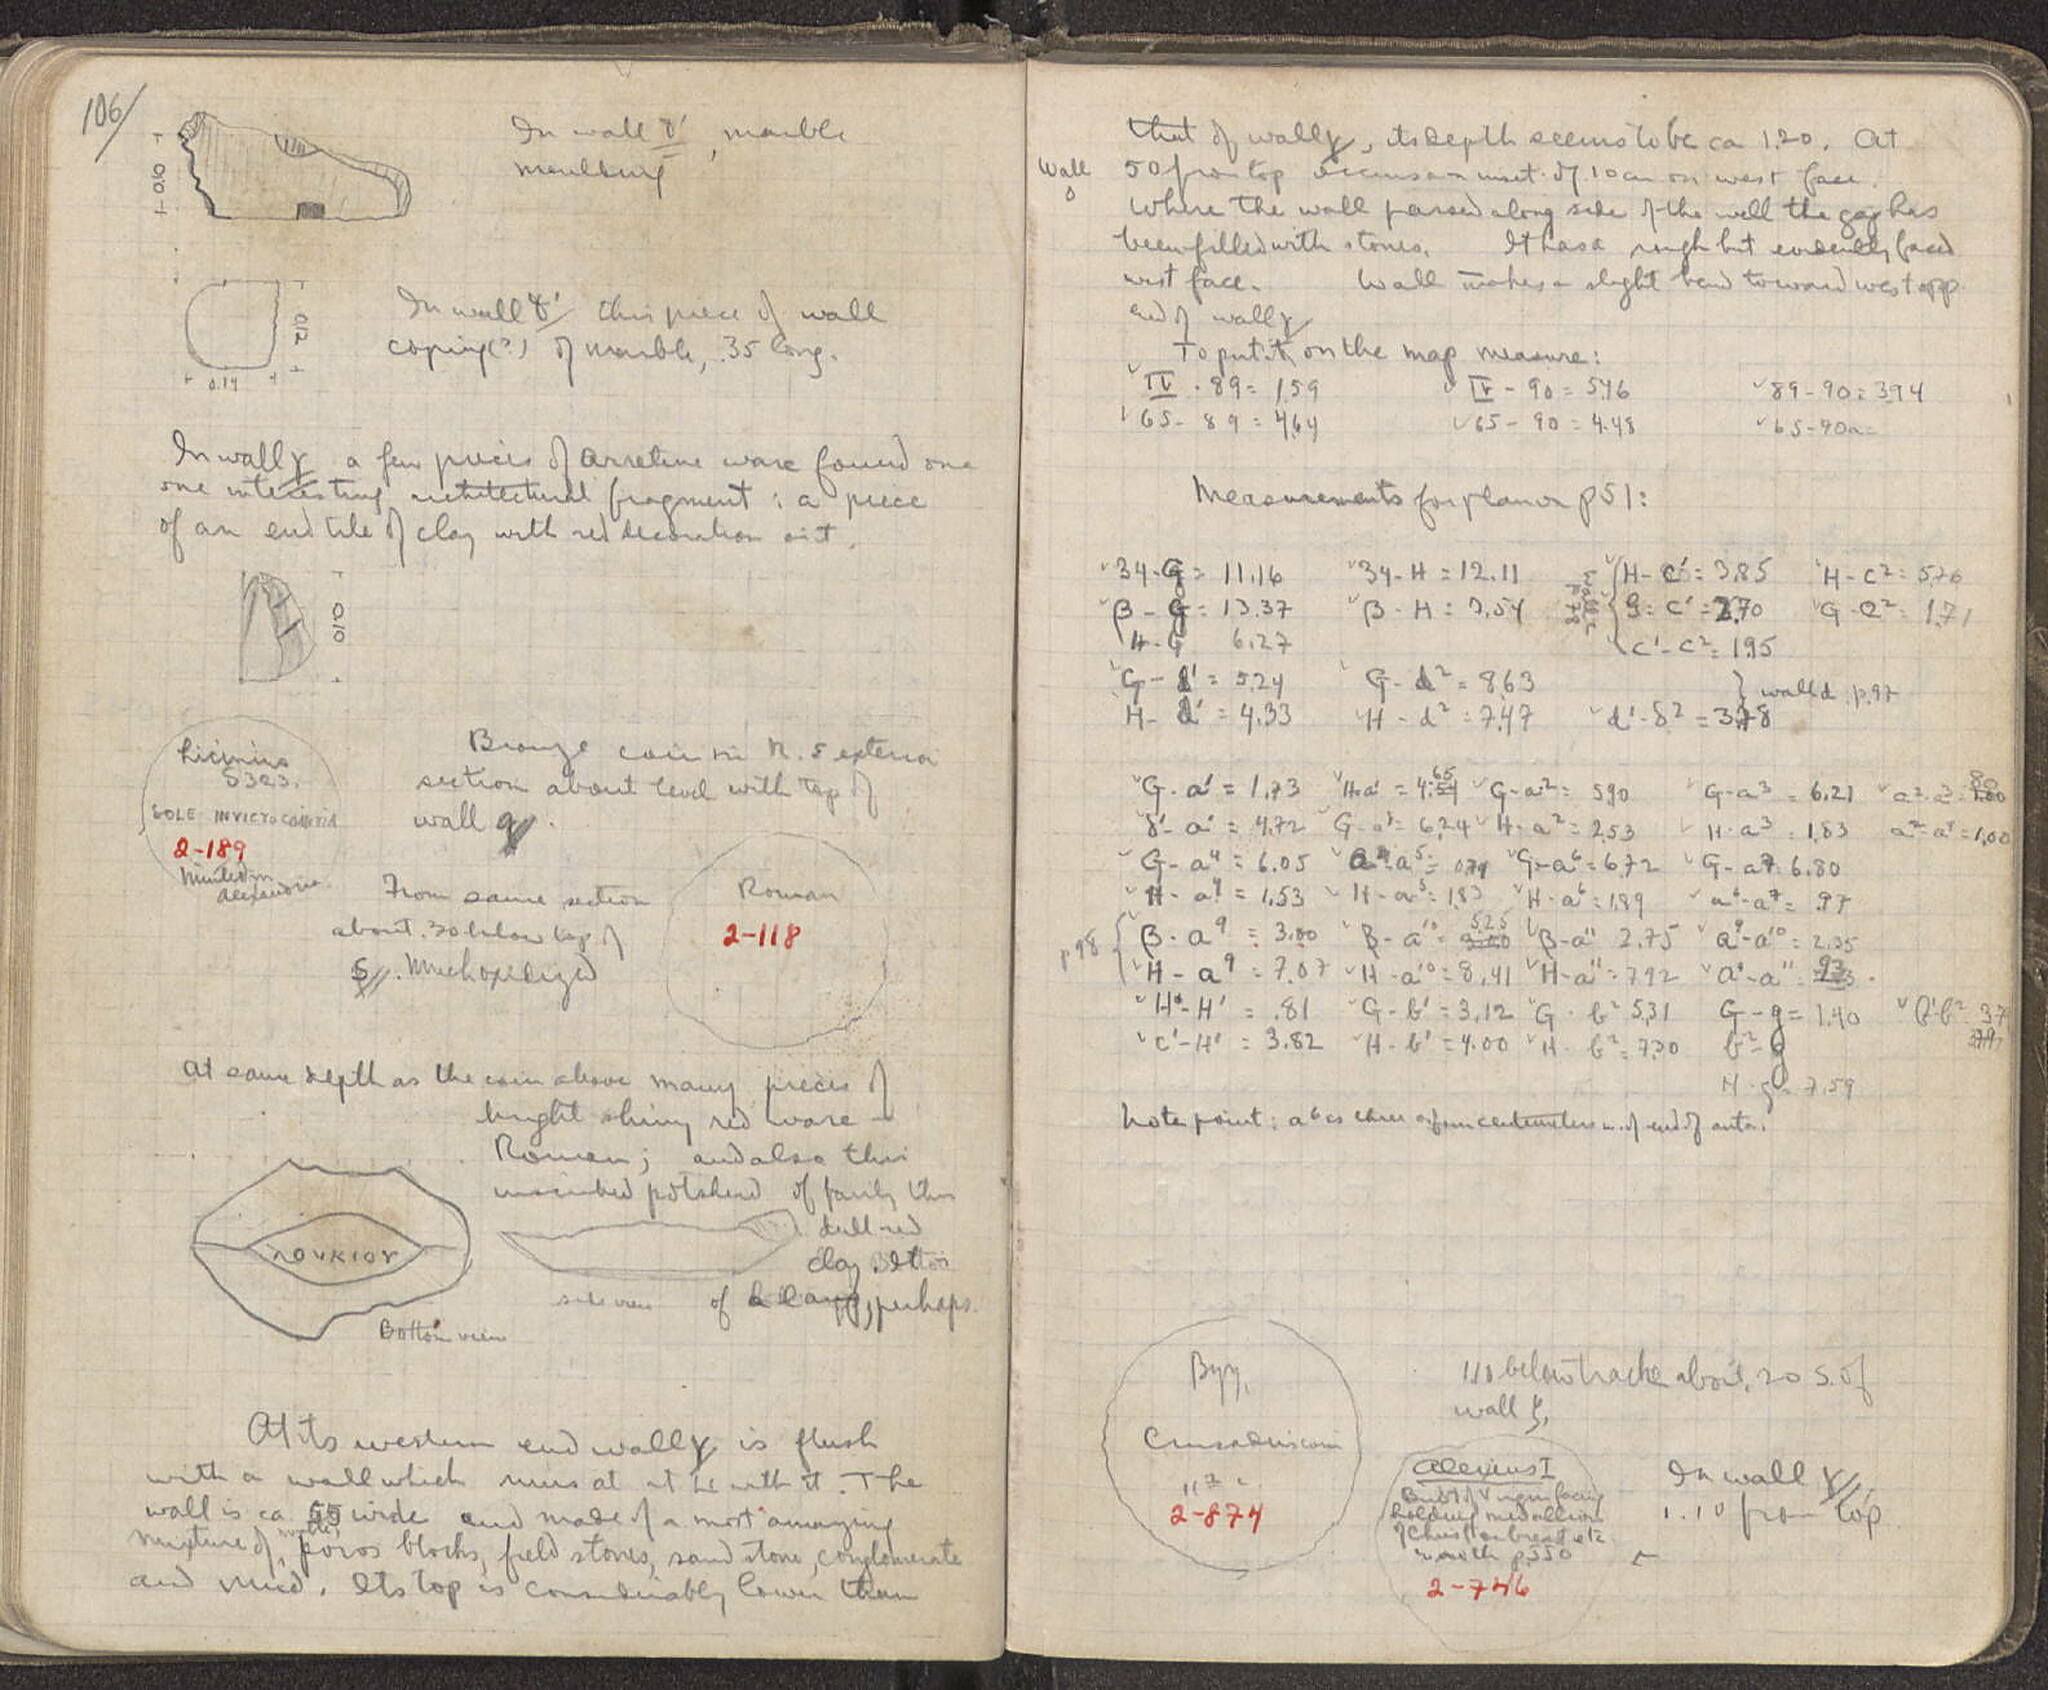 106/
In wall γ', marble
moulding
0.10
In wall γ' this piece of wall
coping(?) of marble, .35 long.
0.14
In wall γ a few pieces of Arretine ware found one
one interesting architectural fragment : a piece
of an end tile of clay with red decoration on it.
0.10
Licinius
S 323.
SOLI INVICTO COMITI
2-189
Minted in
Alexandria
Bronze coin in N. S exterior
section about level with top of
wall
From same section
about .30 below top of
Much oxidized
Roman
2-118
At same depth as the coin above many pieces of
bright shiny red ware —
Roman; and also this
inscribed potsherd of fairly thin
dull red
clay. Bottom
of a lamp, perhaps.
ΛΟΥΚΙΟΥ
side view
Bottom view
At its western end wall γ is flush
with a wall which runs at rt ∠ with it. The
wall is ca. 55 wide and made of a most amazing
mixture of poros blocks, field stones, sandstone, conglomerate
and mud. Its top is considerably lower than
that of wall γ, its depth seems to be ca 1.20. At
Wall
50 from top occurs an inset of 10 cm on west face.
Where the wall passed along side of the well the gap has
been filled with stones. It has a rough but evidently faced
west face. Wall makes a slight bend toward west opp.
end of wall γ
To put it on the map measure:
IV - 89 = 1.59 IV - 90 = 5.46 89 - 90 = 3.94
65 - 89 = 4.64 65 - 90 = 4.48 65 - 90a =
Measurements for plan on p 51:
34-G = 11.16 34-H = 12.11 H-C' = 3.85 H-C² = 5.76
β-G = 13.37 β-H = 7.54 G-C' = 2.70 G-C² = 1.71
H-G 6.27 C'-C² = 1.95
G-d' = 5.24 G-d² = 8.63 wall d p.97
H-d' = 4.33 H-d² = 7.47 d'-δ² = 3.78
G-a' = 1.73 H-a' = 4.65 G-a² = 5.90 G-a³ = 6.21
δ'-a' = 4.72 H-a² = 2.53 H-a³ = 1.83
G-a⁴ = 6.05 G-a⁶ = 6.72 G-a⁷ = 6.80
H-a⁴ = 1.53 H-a⁵ = 1.83 H-a⁶ = 1.89 a⁶-a⁷ = .97
p 98
β-a⁹ = 3.00 β-a¹⁰ = 5.25 β-a¹¹ 2.75 a⁹-a¹⁰ = 2.35
H-a⁹ = 7.07 H-a¹⁰ = 8.41 H-a¹¹ = 7.92
H-H' = .81 G-b' = 3.12 G-b² 5.31 G-g = 1.40
C'-H' = 3.82 H-b' = 4.00 H-b² = 7.30 b²-g
H-g = 7.59
Note point: a⁶ is three or four centimeters of end of anta.
Byz.
Crusader's coin
11th c.
2-874
1.10 below tracks about .20 S. of
wall ζ,
Alexius I
Bust of Virgin facing
holding medallion
of Christ on breast etc
Wroth p. 550
2-746
In wall γ,
1.10 from top